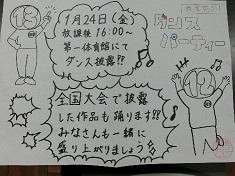 ダンス
パーティー
1月24日(金)
放課後 16:00〜
第一体育館にて
ダンス披露!!
13
12
全国大会で披露
した作品も踊ります!!
みなさんも一緒に
盛り上がりましょう